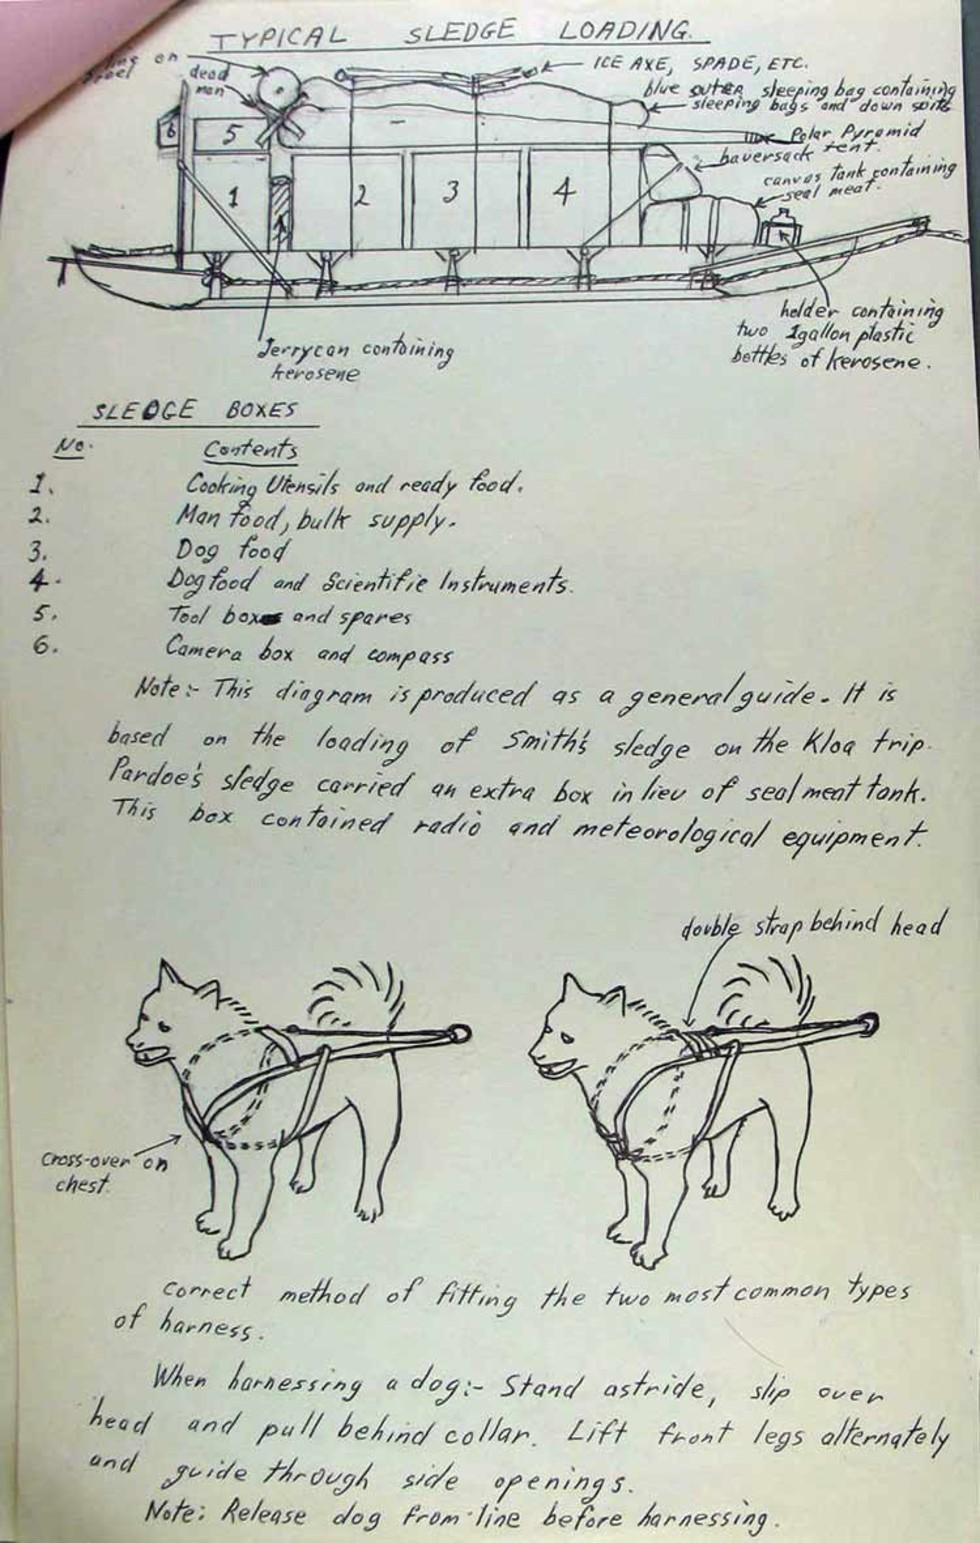 TYPICAL SLEDGE LOADING.
on
dead
man
ICE AXE, SPADE, ETC.
blue outer sleeping bag containing
sleeping bags and down suits
Polar Pyramid
tent.
haversack
canvas tank containing
seal meat.
6
5
1
2
3
4
Jerrycan containing
kerosene
holder containing
two 1gallon plastic
bottles of kerosene.
SLEDGE BOXES
No. Contents
1. Cooking Utensils and ready food.
2. Man food, bulk supply.
3. Dog food
4. Dog food and Scientific Instruments.
5. Tool box and spares
6. Camera box and compass
Note:- This diagram is produced as a general guide. It is
based on the loading of Smith's sledge on the Kloa trip.
Pardoe's sledge carried an extra box in lieu of seal meat tank.
This box contained radio and meteorological equipment.
double strap behind head
cross-over on
chest.
correct method of fitting the two most common types
of harness.
When harnessing a dog:- Stand astride, slip over
head and pull behind collar. Lift front legs alternately
and guide through side openings.
Note: Release dog from line before harnessing.